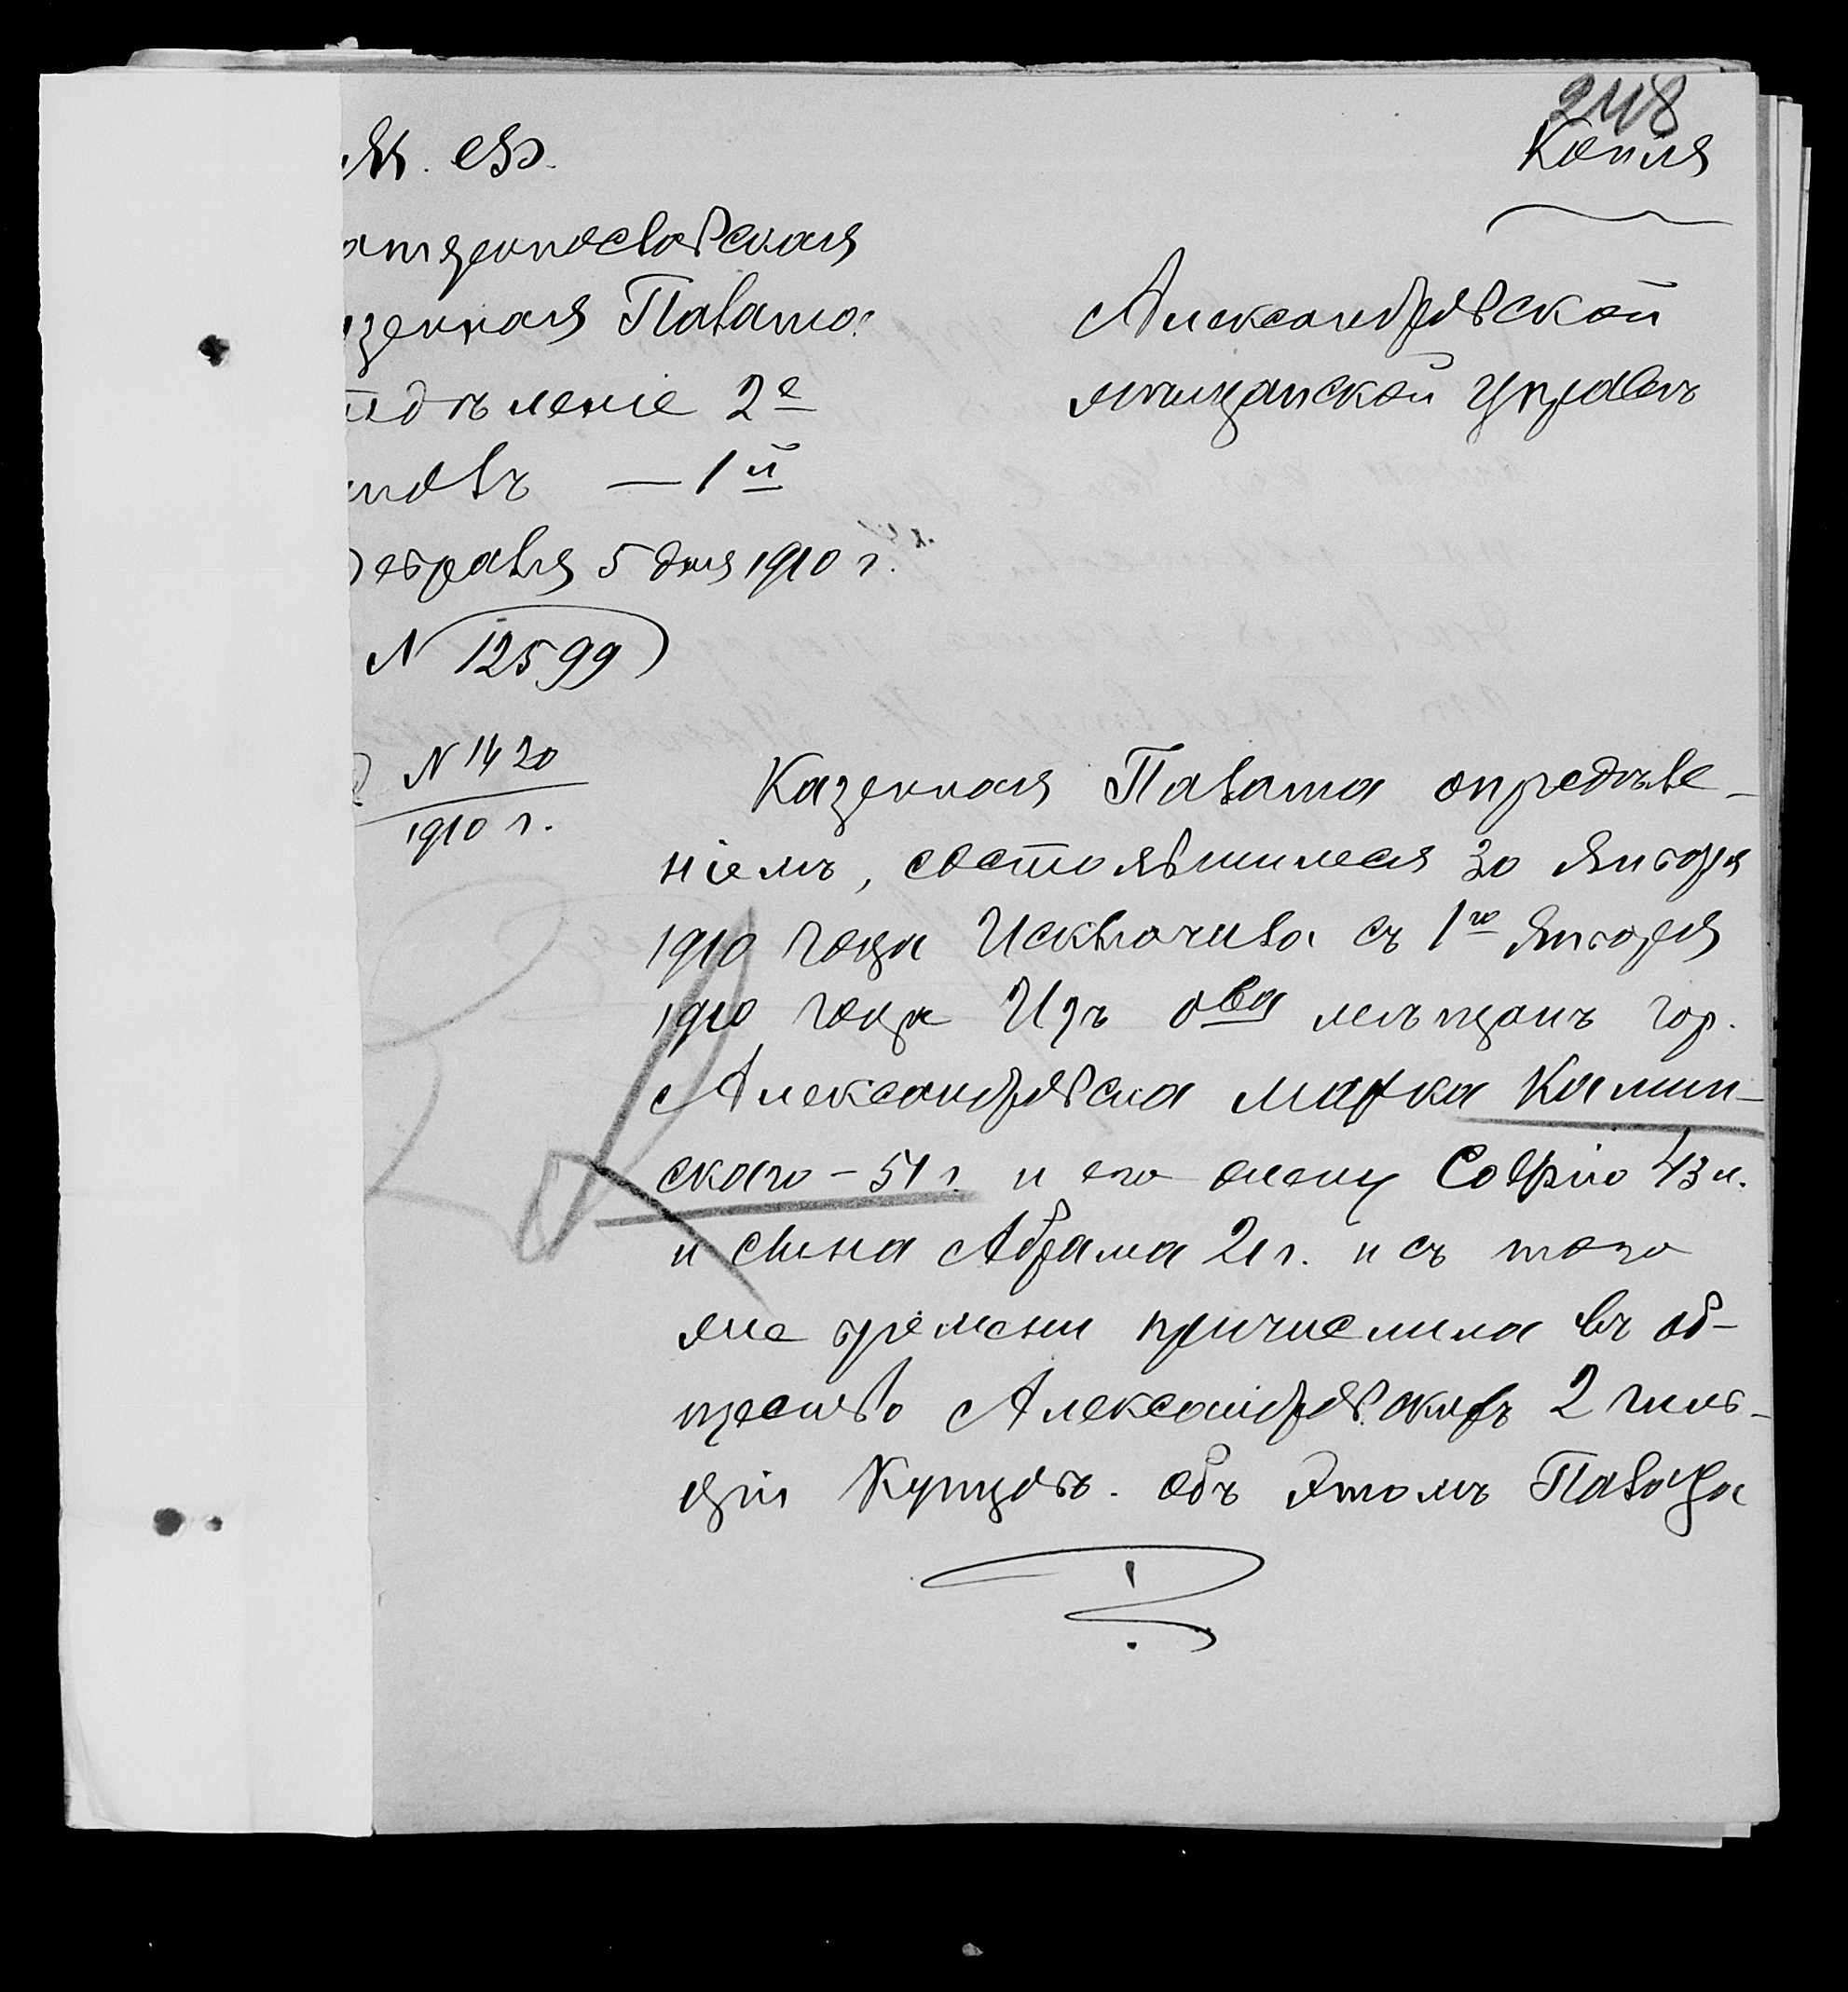 248
Копія
М. Ф.
атеринославская
азенная Палата
тдѣленіе 2е
толъ — 1й
Февраля 5 дня 1910 г.
N 12599
Александровской
мѣщанской управѣ
N 1420
1910 г.
Казенная Палата опредѣле-
ніемъ, состоявшимся 30 Января
1910 года Исключила съ 1го Января
1910 года Изъ о-ва мѣщанъ гор.
Александровска Марка Камин-
скаго - 51 г. и его жену Софію 43 л.
и сына Абрама 21 г. и съ того
же времени причислила въ об-
щество Александровскихъ 2 гиль-
діи Купцовъ. Объ этомъ Палата